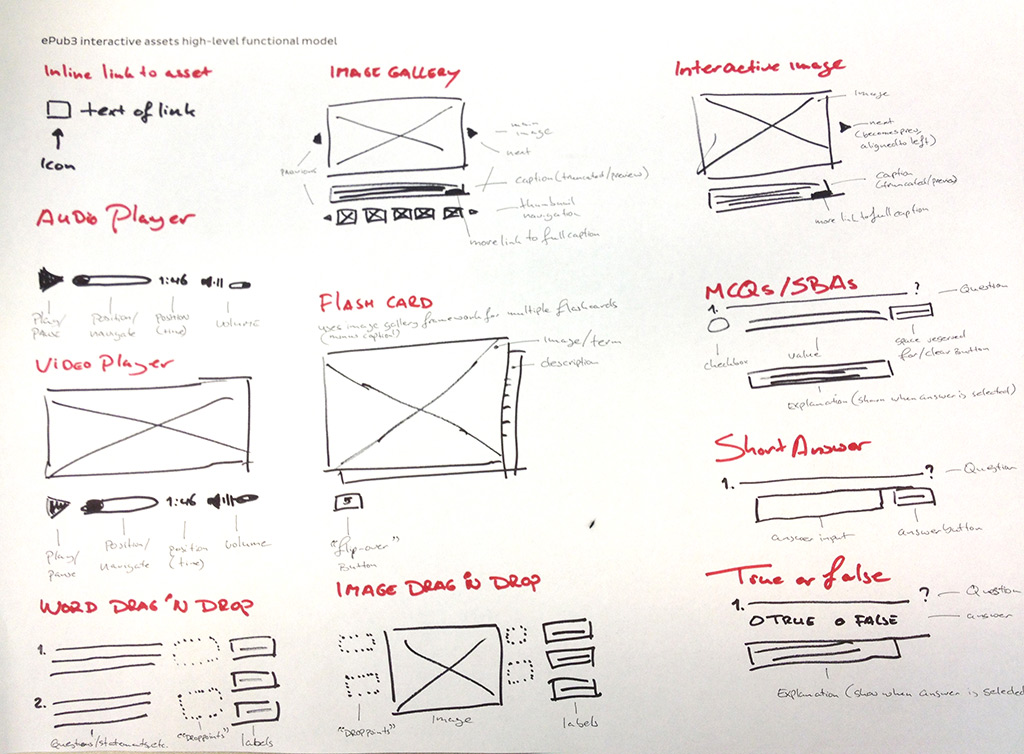 ePub3 interactive assets high-level functional model
Inline link to asset
text of link
Icon
Audio Player
1:46
Play/
Pause
Position/
navigate
Position
(time)
Volume
Video Player
1:46
Play/
pause
Position/
navigate
position
(time)
volume
WORD DRAG 'N DROP
1.
2.
Questions/statements etc.
"Droppoints"
labels
IMAGE GALLERY
main
image
next
previous
caption (truncated/preview)
thumbnail
navigation
more link to full caption
FLASH CARD
uses image gallery framework for multiple flashcards
(minus caption)
image/term
description
"flip-over"
Button
IMAGE DRAG 'N DROP
"Droppoints"
Image
labels
Interactive image
image
next
(becomes prev,
aligned to left)
caption
(truncated/preview)
more link to full caption
MCQs/SBAs
1.
?
Question
checkbox
value
space reserved
for/clear Button
Explanation (shown when answer is selected)
Short Answer
1.
?
Question
answer input
answer button
True or False
1.
?
Question
TRUE
FALSE
answer
Explanation (show when answer is selected